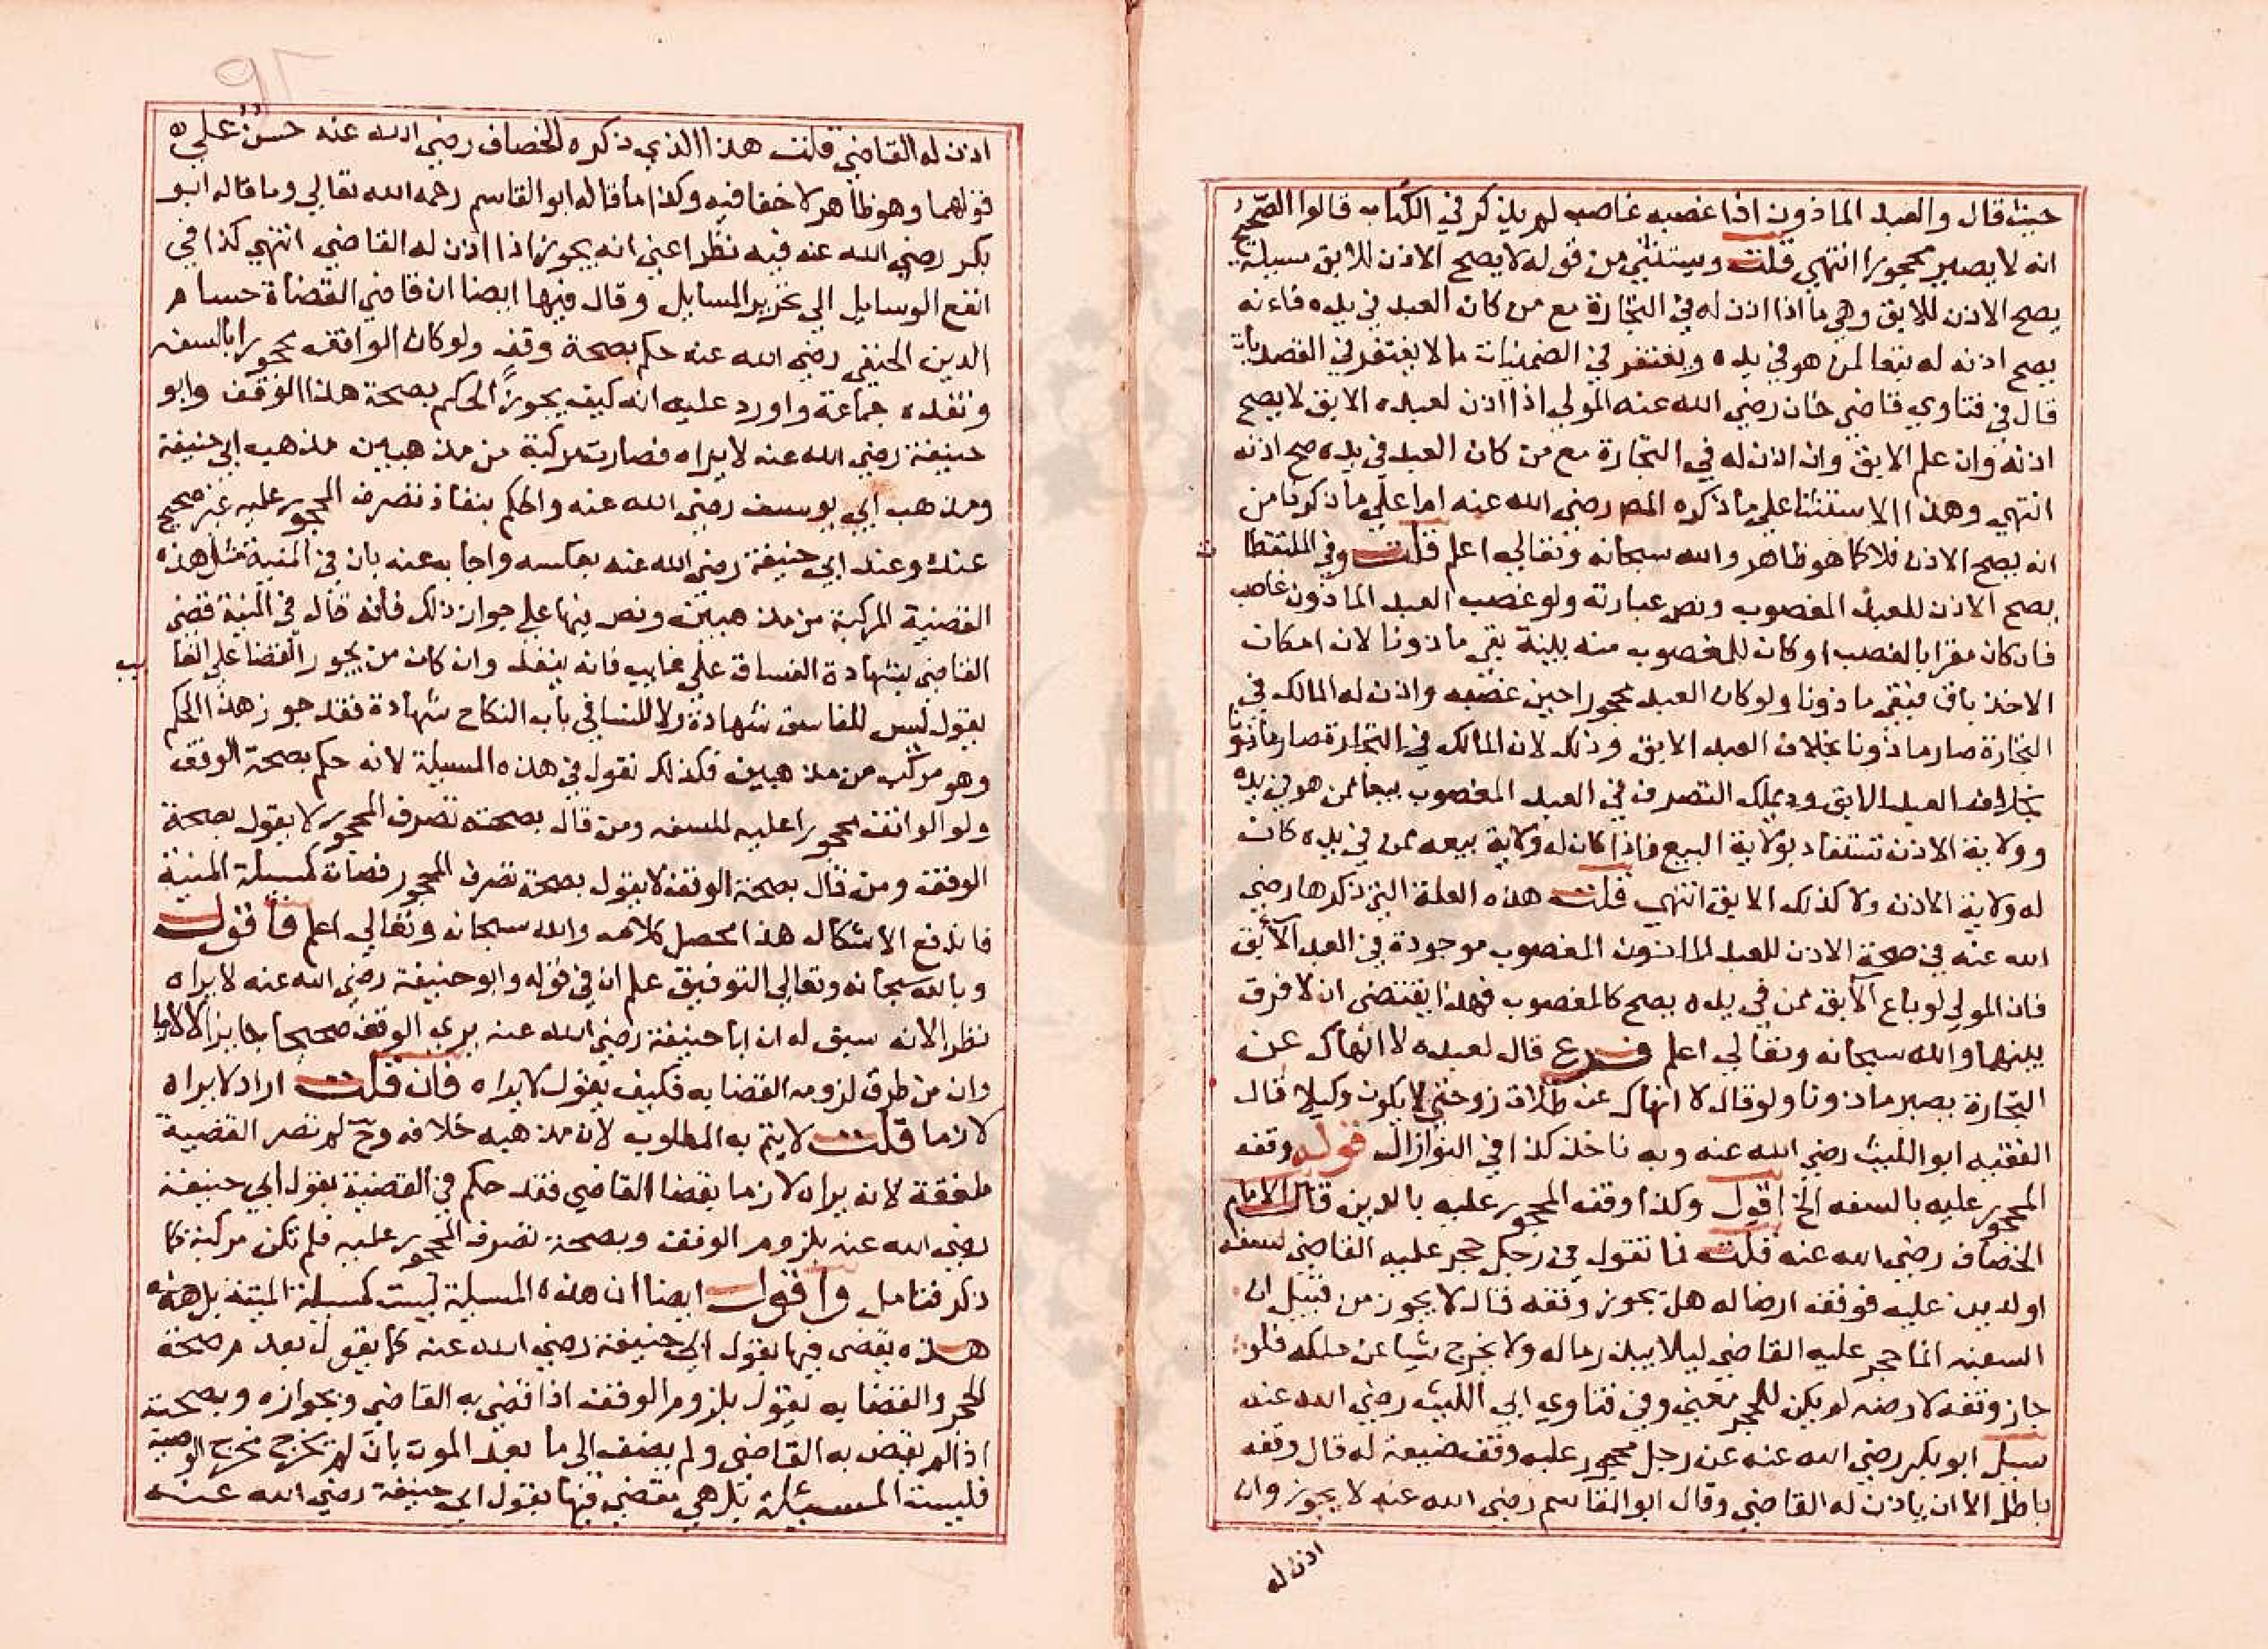 حيث قال والعبد الماذون اذا غصبه غاصب لم يذكر في الكتاب قالوا الصحيح
انه لا يصير محجورا انتهي قلت ويستثني من قوله لا يصح الاذن للابق مسيلة
يصح الاذن للابق وهي ما اذا اذن له في التجارة مع من كان العبد في يده فانه
يصح اذنه له تبعا لمن هو في يده ويغتفر في الضمنيات ما لا يغتفر في القصديات
قال في فتاوي قاضي خان رضي الله عنه المولي اذا اذن لعبده الابق لا يصح
اذنه وان علم الابق وان اذن له في التجارة مع من كان العبد في يده صح اذنه
انتهي وهذا الاستثنا علي ما ذكره المص رضي الله عنه اما علي ما ذكرنا من
انه يصح الاذن فلا كما هو ظاهر والله سبحانه وتعالي اعلم قلت وفي الملتقطا
ت
يصح الاذن للعبد المغصوب ونص عبارته ولو غصب العبد الماذون غاصب
فان كان مقرا بالغصب او كان للمغصوب منه بينة بقي ماذونا لان امكان
الاخذ باق فبقي ماذونا ولو كان العبد محجورا حين غصبه واذن له المالك في
التجارة صار ماذونا بخلاف العبد الابق وذلك لان المالك في التجارة صار ماذونا
بخلاف العبد الابق ويملك التصرف في العبد المغصوب بيعا ممن هو في يده
وولاية الاذن تستفاد بولاية البيع فاذا كان له ولاية بيعه ممن في يده كان
له ولاية الاذن ولا كذلك الابق انتهي قلت هذه العلة التي ذكرها رضي
الله عنه في صحة الاذن للعبد الماذون المغصوب موجودة في العبد الآبق
فان المولي لو باع الآبق ممن في يده يصح كالمغصوب فهذا يقتضي ان لا فرق
بينهما والله سبحانه وتعالي اعلم فرع قال لعبده لا انهاك عن
التجارة يصير ماذونا ولو قال لا انهاك عن طلاق زوجتي لا يكون وكيلا قال
الفقيه ابو الليث رضي الله عنه وبه ناخذ كذا في النوازل قوله وقفه
المحجور عليه بالسفه الخ اقول وكذا وقفه المحجور عليه بالدين قال الامام
الخصاف رضي الله عنه قلت فما تقول في رجل حجر عليه القاضي لسفه
او لدين عليه فوقف ارضا له هل يجوز وقفه قال لا يجوز من قبيل ان
السفيه انما حجر عليه القاضي ليلا يبذر ماله ولا يخرج شيا عن ملكه فلو
جاز وقفه لارضه لم يكن للحجر معني وفي فتاوي ابي الليث رضي الله عنه
سيل ابو بكر رضي الله عنه عن رجل محجور عليه وقف ضيعة له قال وقفه
باطل الا ان ياذن له القاضي وقال ابو القاسم رضي الله عنه لا يجوز وان
اذن له
٩٢
اذن له القاضي قلت هذا الذي ذكره الخصاف رضي الله عنه حسن علي
قولهما وهو ظاهر لا خفا فيه وكذا ما قاله ابو القاسم رحمه الله تعالي وما قاله ابو
بكر رضي الله عنه فيه نظر اعني انه يجوز اذا اذن له القاضي انتهي كذا في
انفع الوسايل الي تحرير المسايل وقال فيها ايضا ان قاضي القضاة حسام
الدين الحنفي رضي الله عنه حكم بصحة وقف ولو كان الواقف محجورا بالسفه
ونفذه جماعة واورد عليه انه كيف يجوز الحكم بصحة هذا الوقف وابو
حنيفة رضي الله عنه لا يراه فصارت مركبة من مذهبين مذهب ابي حنيفة
ومذهب ابي يوسف رضي الله عنه والحكم بنفاذ تصرف المحجور عليه غير صحيح
عنده وعند ابي حنيفة رضي الله عنه بعكسه واجاب عنه بان في المنية مثل هذه
القضية المركبة من مذهبين ونص فيها علي جواز ذلك فانه قال في المنية قضي
القاضي بشهادة الفساق علي غايب فانه ينفذ وان كان من يجوز القضا علي الغا
يب
يقول ليس للفاسق شهادة ولا للنسا في باب النكاح شهادة فقد جوز هذا الحكم
وهو مركب من مذهبين فكذلك نقول في هذه المسيلة لانه حكم بصحة الوقف
ولو الواقف محجورا عليه للسفه ومن قال بصحته تصرف المحجور لا يقول بصحة
الوقف ومن قال بصحة الوقف لا يقول بصحة تصرف المحجور فصات كمسيلة المنية
فاندفع الاشكال هذا محصل كلامه والله سبحانه وتعالي اعلم فاقول
وبالله سبحانه وتعالي التوفيق علم ان في قوله وابو حنيفة رضي الله عنه لا يراه
نظر الانه سبق له ان ابا حنيفة رضي الله عنه يري الوقف صحيحا جايزا لا لازما
وان من طرق لزومه القضا به فكيف يقول لا يراه فان قلت اراد لا يراه
لازما قلت لا يتم به المطلوب لان مذهبه خلافه وح لم تصر القضية
ملفقة لانه يراه لازما بقضا القاضي فقد حكم في القضية بقول ابي حنيفة
رضي الله عنه بلزوم الوقف وبصحة تصرف المحجور عليه فلم تكن مركبة كما
ذكر فتامل واقول ايضا ان هذه المسيلة ليست كمسيلة المنية بل هذه
هذه يقضي فيها بقول ابي حنيفة رضي الله عنه كما يقول بعدم صحة
الحجر والقضا به يقول بلزوم الوقف اذا قضي به القاضي وبجوازه وبصحته
اذا لم يقض به القاضي ولم يضف الي ما بعد الموت بان لم يخرج مخرج الوصية
فليست المسيلة بل هي يقضي فيها بقول ابي حنيفة رضي الله عنه